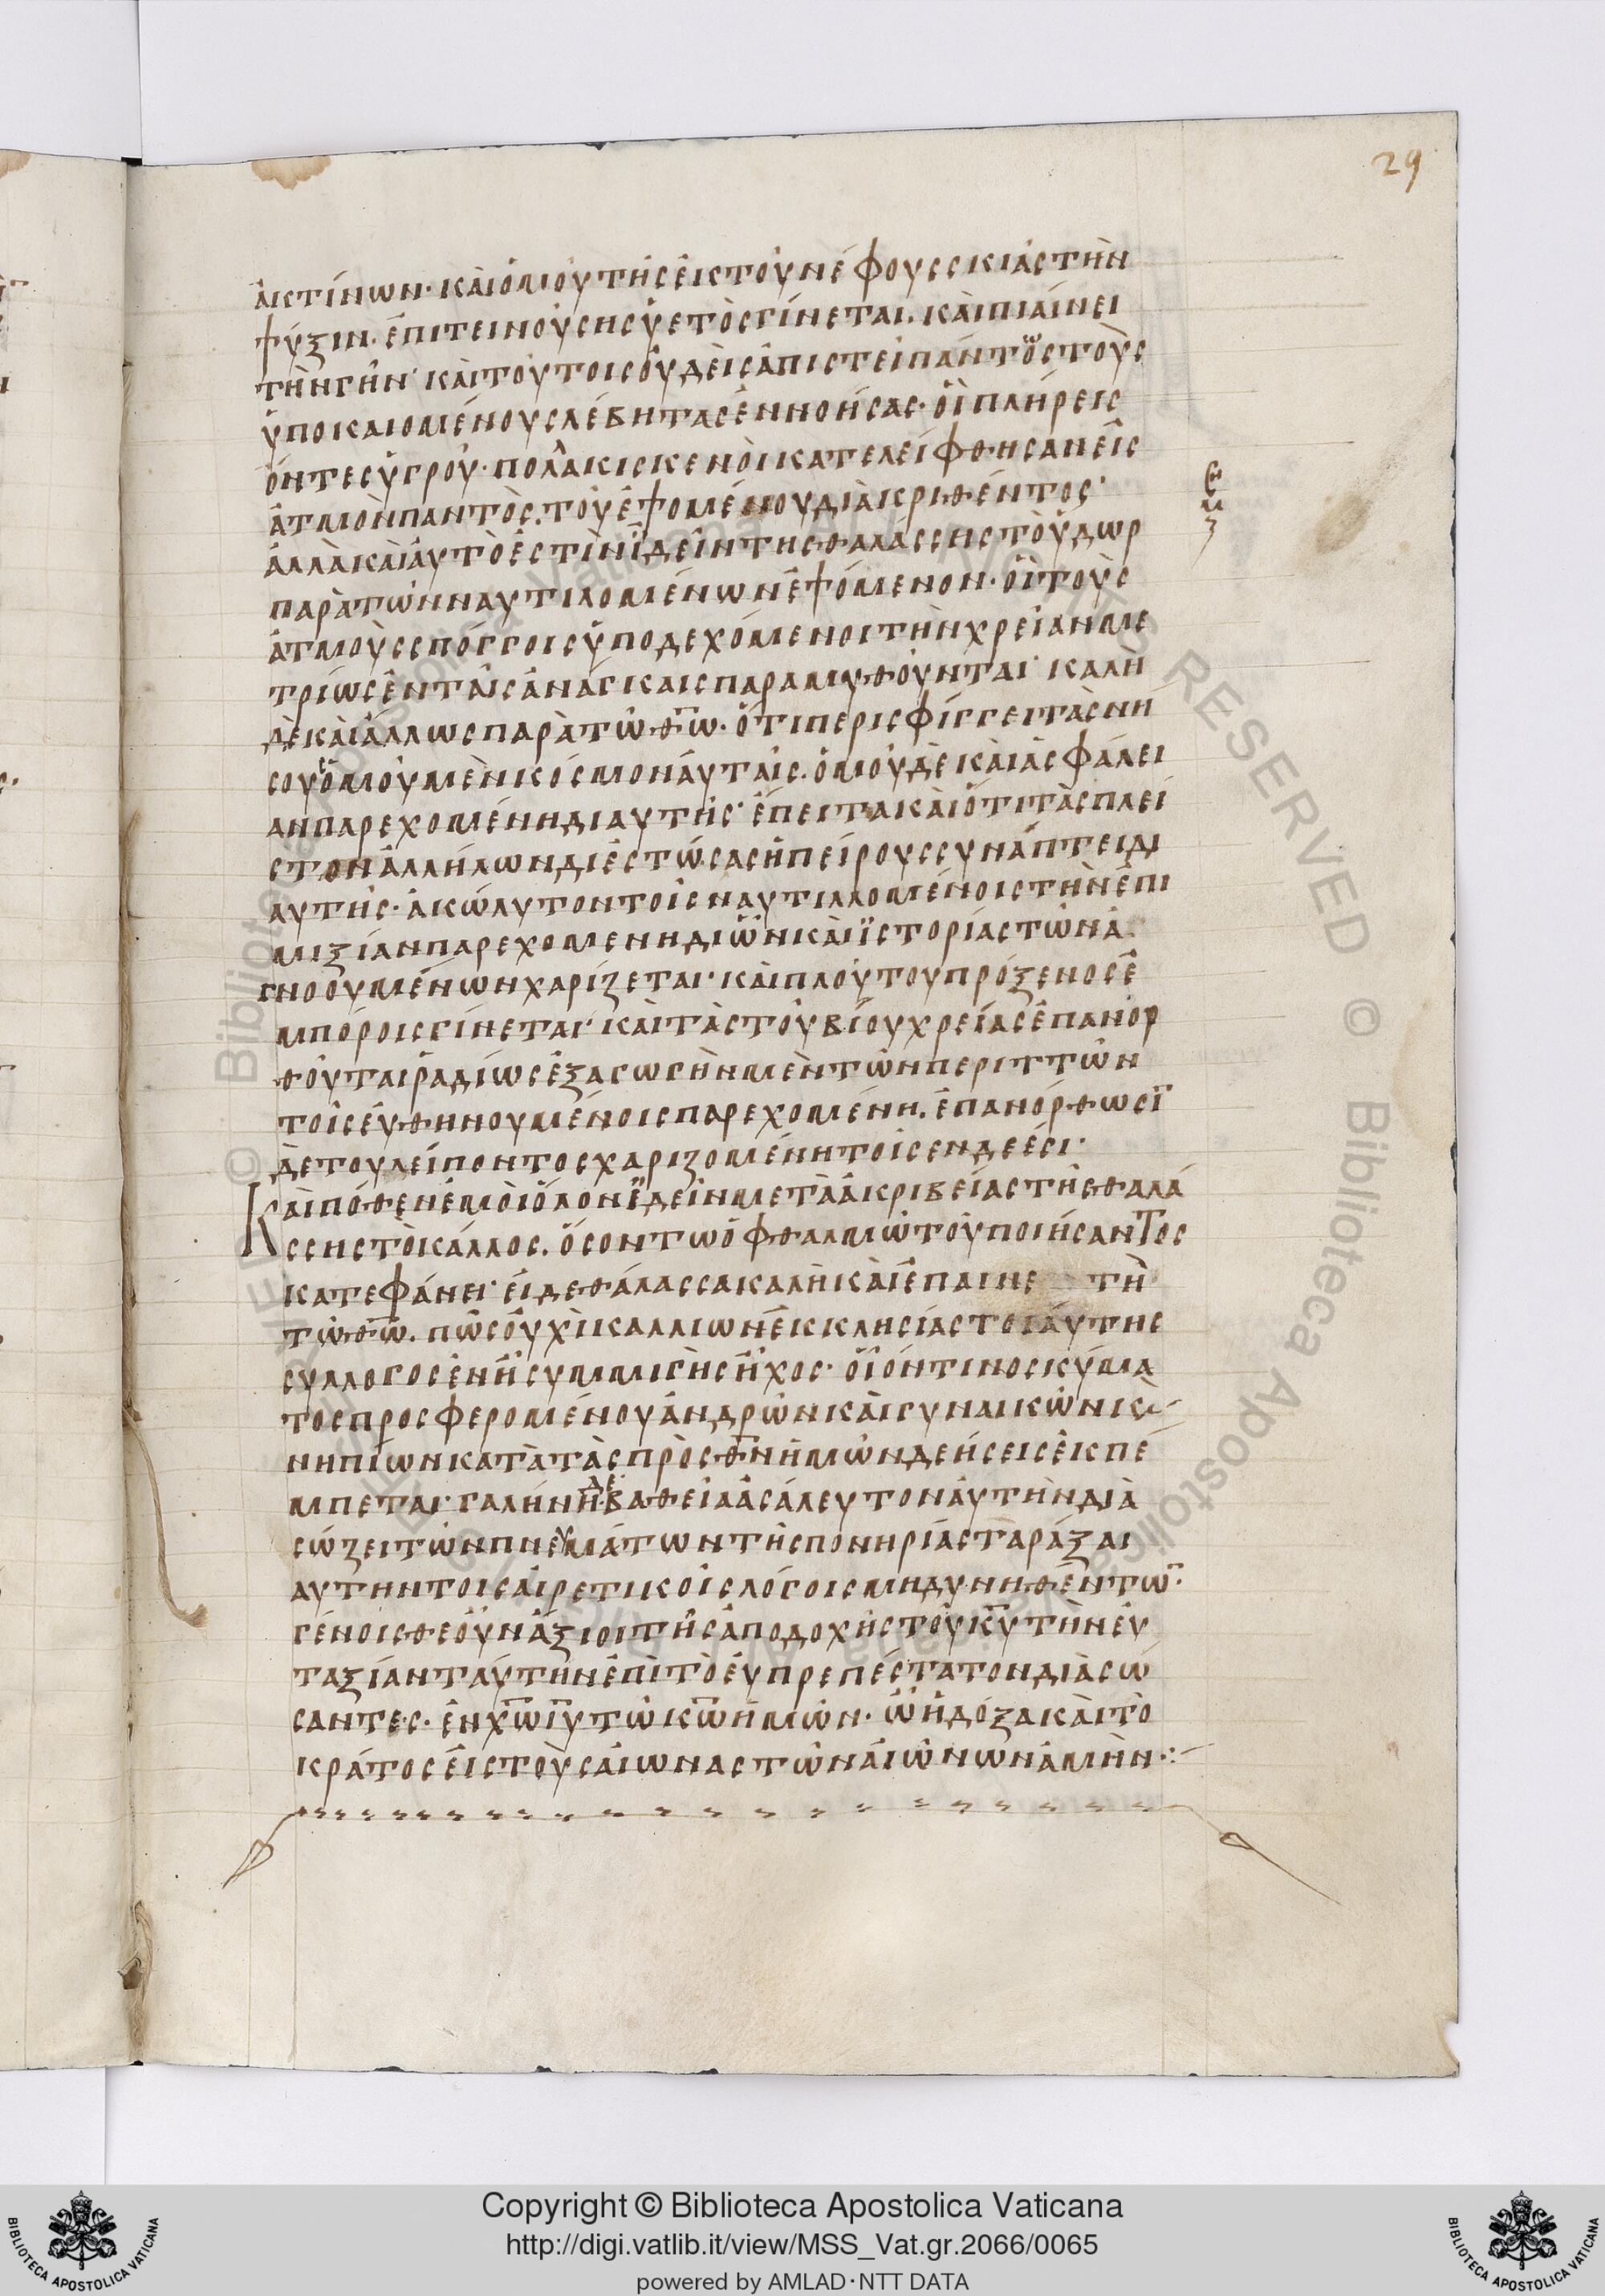 29
ἀκτίνων· καὶ ὁμιοῦ τῆς ἐκ τοῦ νέφους σκιᾶς τὴν
ψύξιν· ἐπιτεινούσης ὑετὸς γίνεται. καὶ πιαίνει
τὴν γῆν· καὶ τούτοις οὐδεὶς ἀπιστεῖ πάντως τοὺς
ὑποκαιομένους λέβητας ἐννοήσας· οἳ πλήρεις
ὄντες ὑγροῦ· πολλάκις κενοὶ κατελείφθησαν εἰς
ἀτμὸν παντὸς. τοῦ ἑψομένου διακριθέντος·
ἀλλὰ καὶ αὐτὸ ἐστὶν ἰδεῖν τῆς θαλάσσης τὸ ὕδωρ
παρὰ τῶν ναυτιλομένων ἑψόμενον· οἳ τοὺς
ἀτμοὺς σπόγγοις ὑποδεχόμενοι τὴν χρείαν με
τρίως ἐν ταῖς ἀνάγκαις παραμυθοῦνται· καλὴ
δὲ καὶ ἄλλως παρὰ τῶ θῶ. ὅτι περισφίγγει τὰς νή
σους ὁμοῦ μὲν κόσμον αὐταῖς. ὁμοῦ δὲ καὶ ἀσφάλει
αν παρεχομένη δι αυτῆς· ἔπειτα καὶ ὅτι τὰς πλεῖ
στον ἀλλήλων διεστώσας ἠπείρους συνάπτει δι
αυτῆς· ἀκώλυτον τοῖς ναυτιλλομένοις τὴν ἐπι
μιξίαν παρεχομενη δι ὧν καὶ ἱστορίας τῶν ἀ
γνοουμένων χαρίζεται· καὶ πλούτου πρόξενος ἐ
μπόροις γίνεται· καὶ τὰς τοῦ βίου χρείας ἐπανορ
θοῦται ῥαδίως ἐξαγωγὴν μὲν τῶν περιττῶν
τοῖς εὐθηνουμένοις παρεχομένη. ἐπανόρθωσῑ
δὲ του λείποντος χαριζομένη τοῖς ενδεέσι·
Καὶ πόθεν ἐμοὶ ὅλον ἰδεῖν μετὰ ἀκριβείας τῆς θαλά
σσης τὸ κάλλος. ὅσον τω ὀφθαλμῶ τοῦ ποιήσαντος
κατεφάνει· εἰ δε θάλασσα καλὴ καὶ ἐπαινετὴ
τῶ θῶ. πῶς οὐχὶ καλλιων ἐκκλησίας τοιαύτης
συλλογος ἐν ἧ συμμιγὴς ἦχος· οἷόν τινος κύμα
τος προσφερομένου ἀνδρῶν καὶ γυναικῶν κὲ
νηπίων κατὰ τὰς πρὸς θν ἡμῶν δεήσεις ἐκπέ
μπεται· γαλήνη δὲ βαθεῖα ἀσάλευτον αὐτὴν δια
σώζει τῶν πνευμάτων τῆς πονηρίας ταράξαι
αυτην τοις αἱρετικοῖς λόγοις μη δυνηθέντω̄·
γένοισθε οὖν ἄξιοι τῆς ἀποδοχῆς τοῦ κυ τὴν εὐ
ταξίαν ταύτην ἐπὶ τὸ εὐπρεπέστατον διασώ
σαντες. ἐν χω ιυ τῶ κω ἡμῶν· ὧ ἡ δόξα καὶ τὸ
κράτος εἰς τοὺς αἰωνας τῶν αἰώνων ἀμὴν·:-
Copyright © Biblioteca Apostolica Vaticana
http://digi.vatlib.it/view/MSS_Vat.gr.2066/0065
powered by AMLAD·NTT DATA